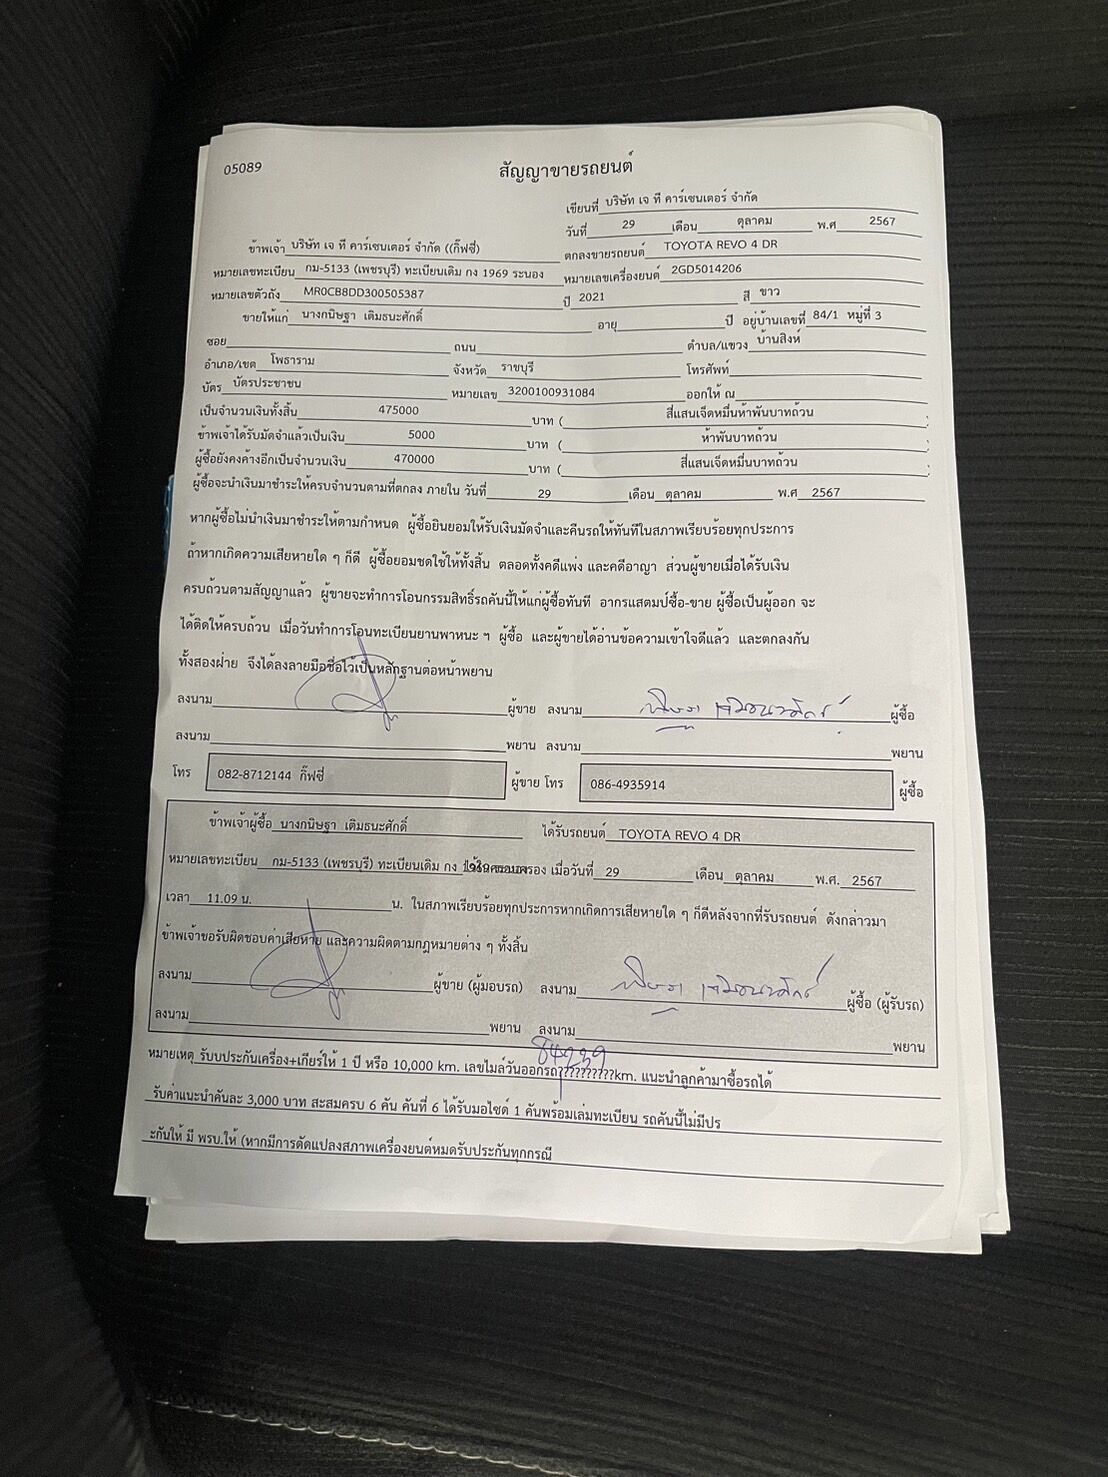 05089
สัญญาขายรถยนต์
เขียนที่ บริษัท เจ ที คาร์เซนเตอร์ จำกัด
วันที่ 29 เดือน ตุลาคม พ.ศ 2567
ข้าพเจ้า บริษัท เจ ที คาร์เซนเตอร์ จำกัด ((กิ๊ฟซี่) ตกลงขายรถยนต์ TOYOTA REVO 4 DR
หมายเลขทะเบียน กม-5133 (เพชรบุรี) ทะเบียนเดิม กง 1969 ระนอง หมายเลขเครื่องยนต์ 2GD5014206
หมายเลขตัวถัง MR0CB8DD300505387 ปี 2021 สี ขาว
ขายให้แก่ นางกนิษฐา เติมธนะศักดิ์ อายุ ปี อยู่บ้านเลขที่ 84/1 หมู่ที่ 3
ซอย ถนน ตำบล/แขวง บ้านสิงห์
อำเภอ/เขต โพธาราม จังหวัด ราชบุรี โทรศัพท์
บัตร บัตรประชาชน หมายเลข 3200100931084 ออกให้ ณ
เป็นจำนวนเงินทั้งสิ้น 475000 บาท ( สี่แสนเจ็ดหมื่นห้าพันบาทถ้วน )
ข้าพเจ้าได้รับมัดจำแล้วเป็นเงิน 5000 บาท ( ห้าพันบาทถ้วน )
ผู้ซื้อยังคงค้างอีกเป็นจำนวนเงิน 470000 บาท ( สี่แสนเจ็ดหมื่นบาทถ้วน )
ผู้ซื้อจะนำเงินมาชำระให้ครบจำนวนตามที่ตกลง ภายใน วันที่ 29 เดือน ตุลาคม พ.ศ 2567
หากผู้ซื้อไม่นำเงินมาชำระให้ตามกำหนด ผู้ซื้อยินยอมให้รับเงินมัดจำและคืนรถให้ทันทีในสภาพเรียบร้อยทุกประการ
ถ้าหากเกิดความเสียหายใด ๆ ก็ดี ผู้ซื้อยอมชดใช้ให้ทั้งสิ้น ตลอดทั้งคดีแพ่ง และคดีอาญา ส่วนผู้ขายเมื่อได้รับเงิน
ครบถ้วนตามสัญญาแล้ว ผู้ขายจะทำการโอนกรรมสิทธิ์รถคันนี้ให้แก่ผู้ซื้อทันที อากรแสตมป์ซื้อ-ขาย ผู้ซื้อเป็นผู้ออก จะ
ได้ติดให้ครบถ้วน เมื่อวันทำการโอนทะเบียนยานพาหนะ ฯ ผู้ซื้อ และผู้ขายได้อ่านข้อความเข้าใจดีแล้ว และตกลงกัน
ทั้งสองฝ่าย จึงได้ลงลายมือชื่อไว้เป็นหลักฐานต่อหน้าพยาน
ลงนาม ผู้ขาย ลงนาม กนิษฐา เติมธนะศักดิ์ ผู้ซื้อ
ลงนาม พยาน ลงนาม พยาน
โทร 082-8712144 กิ๊ฟซี่ ผู้ขาย โทร 086-4935914 ผู้ซื้อ
ข้าพเจ้าผู้ซื้อ นางกนิษฐา เติมธนะศักดิ์ ได้รับรถยนต์ TOYOTA REVO 4 DR
หมายเลขทะเบียน กม-5133 (เพชรบุรี) ทะเบียนเดิม กง 1969 ระนอง เมื่อวันที่ 29 เดือน ตุลาคม พ.ศ. 2567
เวลา 11.09 น. น. ในสภาพเรียบร้อยทุกประการหากเกิดการเสียหายใด ๆ ก็ดีหลังจากที่รับรถยนต์ ดังกล่าวมา
ข้าพเจ้าขอรับผิดชอบค่าเสียหาย และความผิดตามกฎหมายต่าง ๆ ทั้งสิ้น
ลงนาม ผู้ขาย (ผู้มอบรถ) ลงนาม กนิษฐา เติมธนะศักดิ์ ผู้ซื้อ (ผู้รับรถ)
ลงนาม พยาน ลงนาม พยาน
84239
หมายเหตุ รับบประกันเครื่อง+เกียร์ให้ 1 ปี หรือ 10,000 km. เลขไมล์วันออกรถ??????????km. แนะนำลูกค้ามาซื้อรถได้
รับค่าแนะนำคันละ 3,000 บาท สะสมครบ 6 คัน คันที่ 6 ได้รับมอไซด์ 1 คันพร้อมเล่มทะเบียน รถคันนี้ไม่มีปร
ะกันให้ มี พรบ.ให้ (หากมีการดัดแปลงสภาพเครื่องยนต์หมดรับประกันทุกกรณี